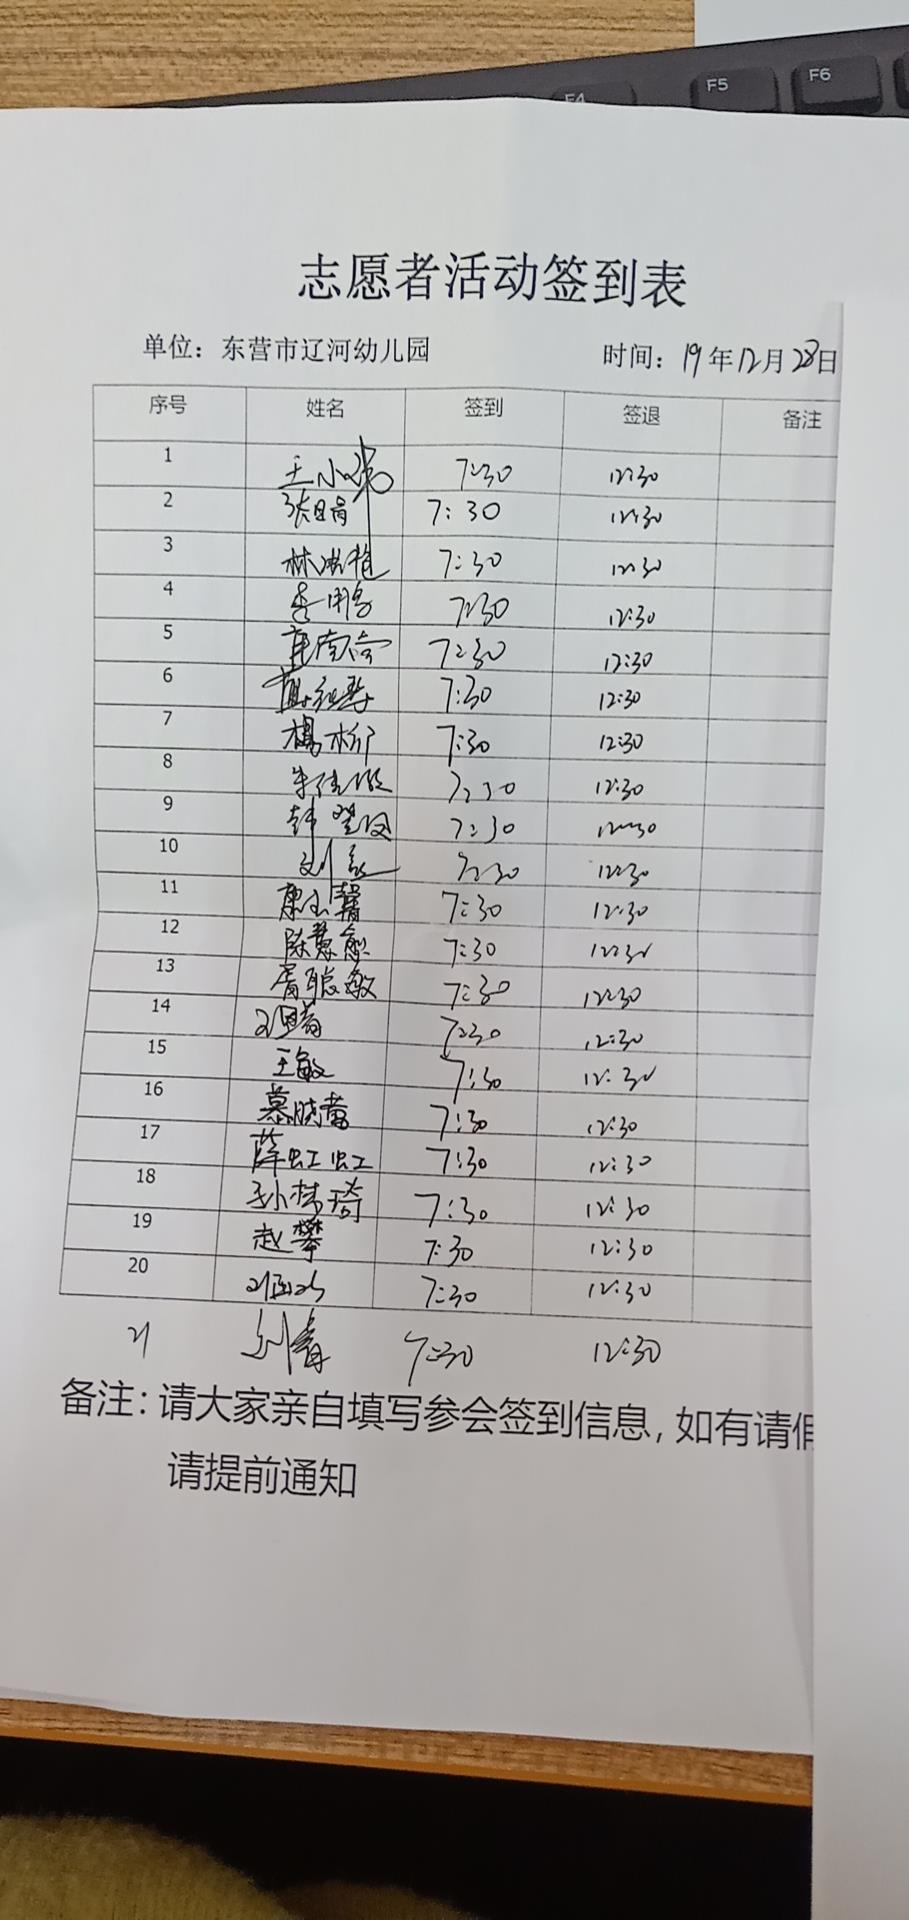 F4 F5 F6
志愿者活动签到表
单位：东营市辽河幼儿园 时间：19年12月28日
序号 姓名 签到 签退 备注
1 王小 7:30 12:30
2 张娟 7:30 12:30
3 林艳 7:30 12:30
4 7:30 12:30
5 7:30 12:30
6 7:30 12:30
7 杨 7:30 12:30
8 朱佳 7:30 12:30
9 韩 7:30 12:30
10 刘 7:30 12:30
11 康玉馨 7:30 12:30
12 陈慧愈 7:30 12:30
13 聪敏 7:30 12:30
14 7:30 12:30
15 王敏 7:30 12:30
16 慕晓蕾 7:30 12:30
17 薛虹虹 7:30 12:30
18 孙梦琦 7:30 12:30
19 赵攀 7:30 12:30
20 7:30 12:30
21 刘青 7:30 12:30
备注：请大家亲自填写参会签到信息，如有请假
请提前通知